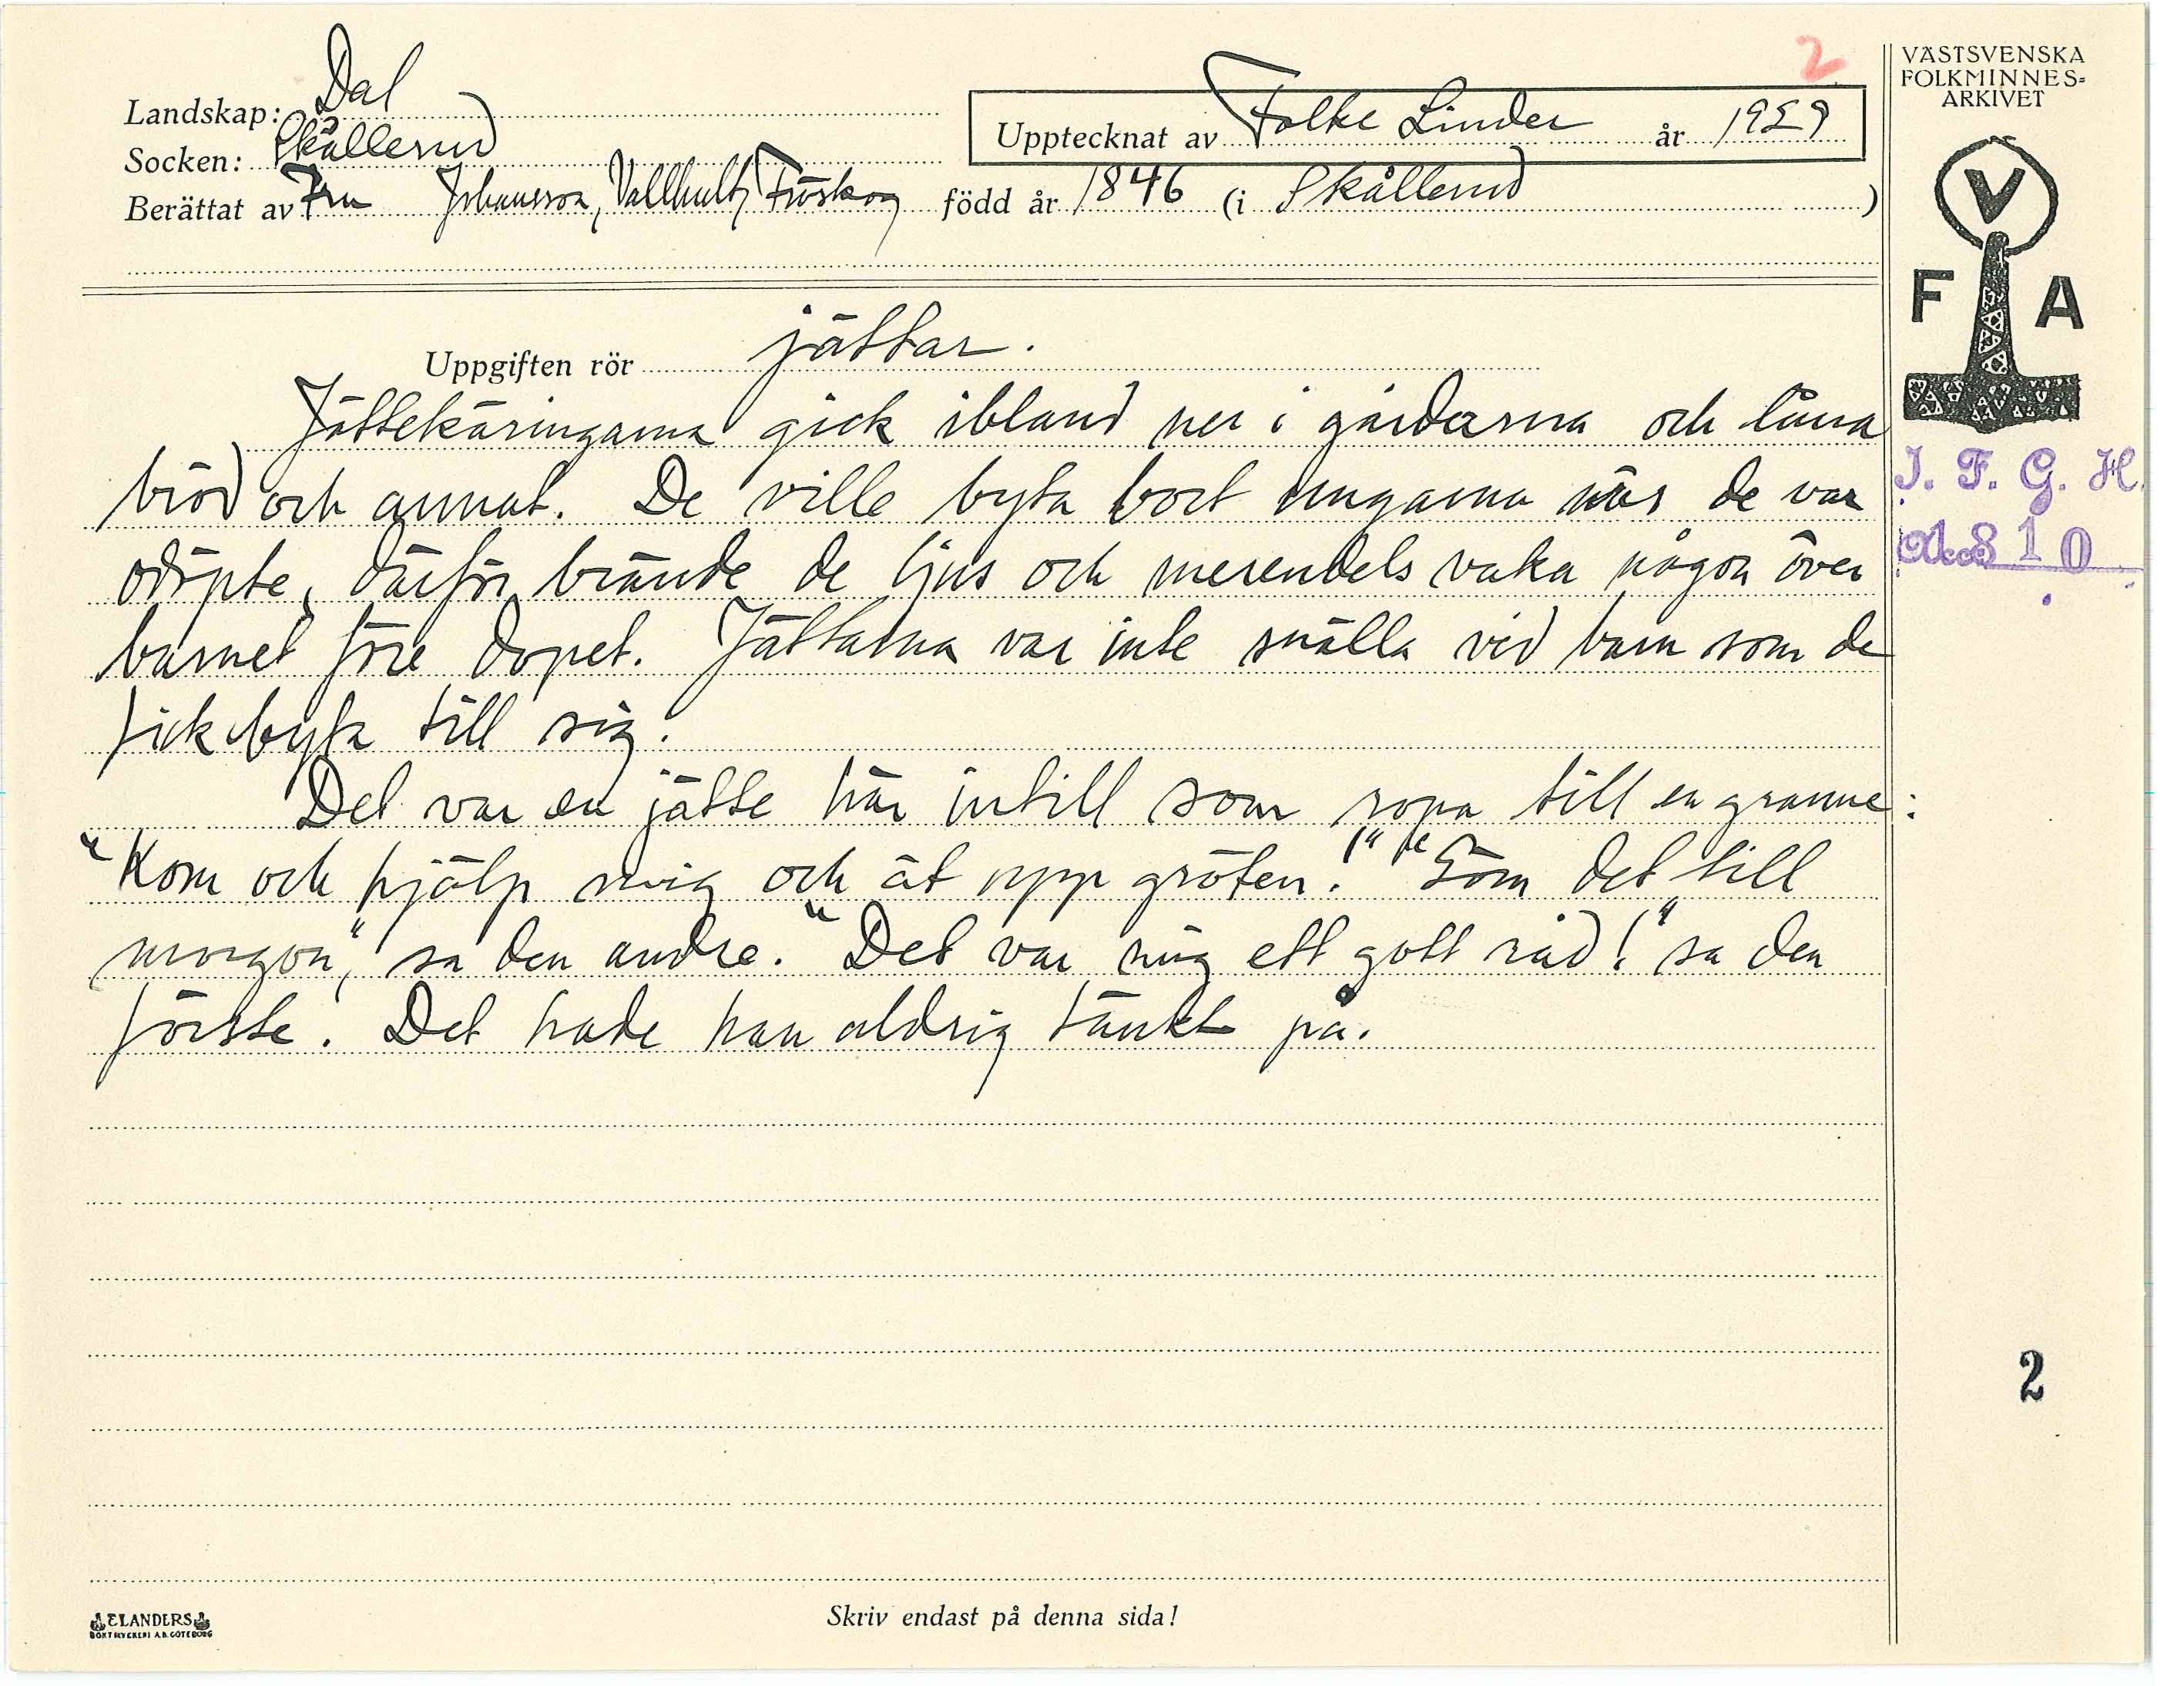 2
VÄSTSVENSKA
FOLKMINNES-
ARKIVET
Landskap: Dal
Socken: Skållerud
Upptecknat av Folke Linder år 1929
Berättat av Fru Johansson, Vallhult, Fröskog född år 1846 (i Skållerud)
V
F A
Uppgiften rör jättar.
Jättekäringarna gick ibland ner i gårdarna och låna
bröd och annat. De ville byta bort ungarna när de var
odöpte, därför brände de ljus och merendels vaka någon över
barnet före dopet. Jättarna var inte snälla vid barn som de
fick byta till sig.
Det var en jätte här intill som ropa till en granne:
"Kom och hjälp mig och ät upp gröten!" "Göm det till
morgon", sa den andre. "Det var mig ett gott råd!" sa den
förste. Det hade han aldrig tänkt på.
I. F. G. H.
Acc 810
2
ELANDERS
BOKTRYCKERI A.B. GÖTEBORG
Skriv endast på denna sida!